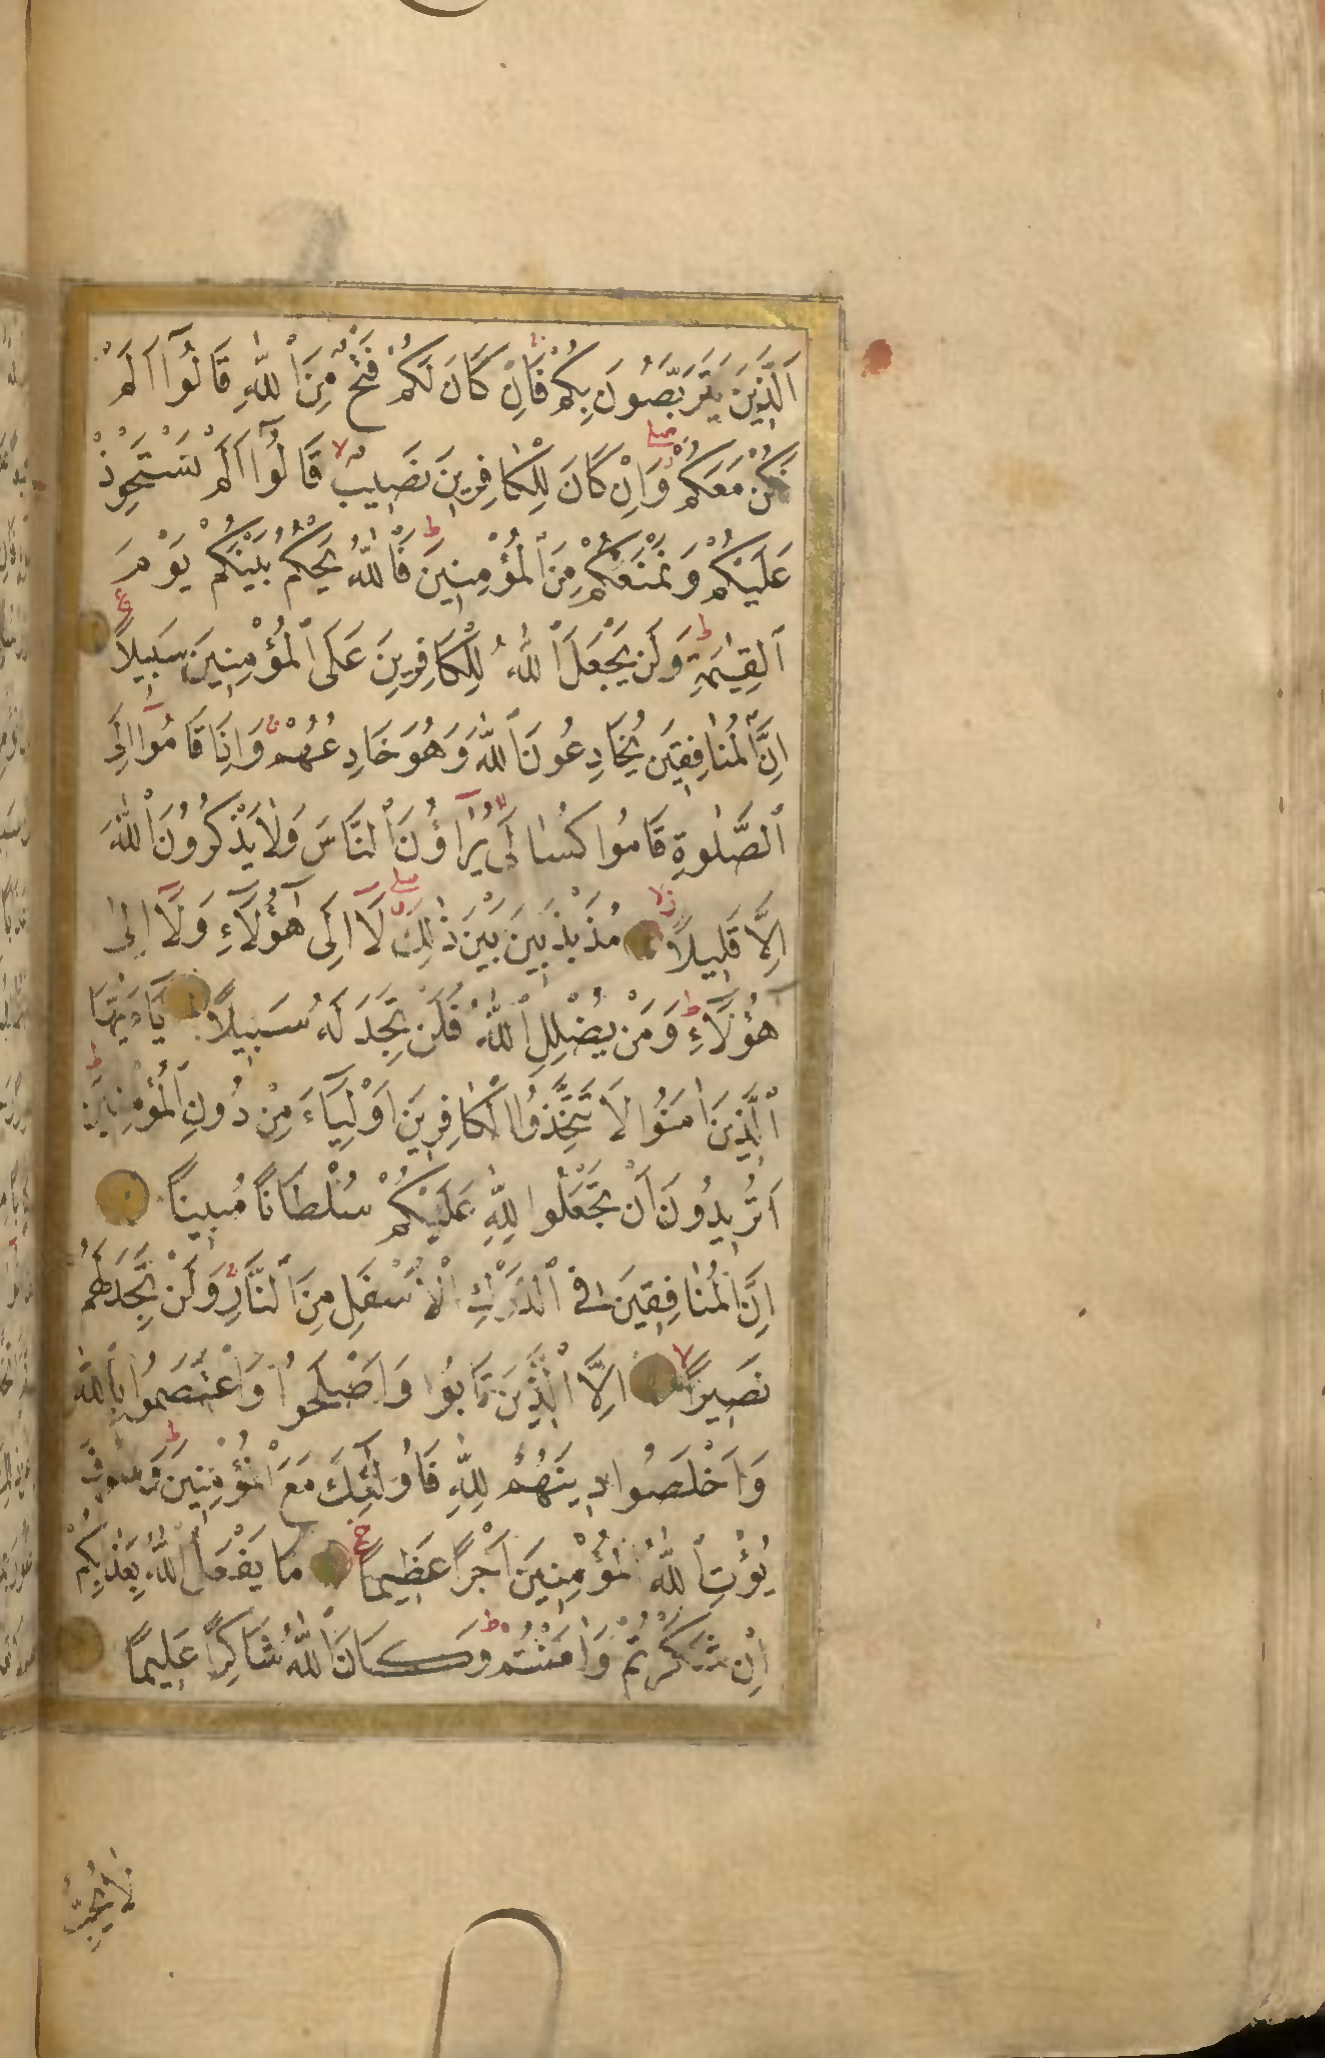 اَلَّذِينَ يَتَرَبَّصُونَ بِكُمْ فَاِنْ كَانَ لَكُمْ فَتْحٌ مِنَ اللّٰهِ قَالُٓوا اَلَمْ
نَكُنْ مَعَكُمْ وَاِنْ كَانَ لِلْكَافِرِينَ نَصِيبٌ قَالُٓوا اَلَمْ نَسْتَحْوِذْ
عَلَيْكُمْ وَنَمْنَعْكُمْ مِنَ الْمُؤْمِنِينَ فَاللّٰهُ يَحْكُمُ بَيْنَكُمْ يَوْمَ
الْقِيٰمَةِ وَلَنْ يَجْعَلَ اللّٰهُ لِلْكَافِرِينَ عَلَى الْمُؤْمِنِينَ سَبِيلًا
اِنَّ الْمُنَافِقِينَ يُخَادِعُونَ اللّٰهَ وَهُوَ خَادِعُهُمْ وَاِذَا قَامُٓوا اِلَى
الصَّلٰوةِ قَامُوا كُسَالٰى يُرَٓاؤُنَ النَّاسَ وَلَا يَذْكُرُونَ اللّٰهَ
اِلَّا قَلِيلًا مُذَبْذَبِينَ بَيْنَ ذٰلِكَ لَٓا اِلٰى هٰٓؤُلَٓاءِ وَلَٓا اِلٰى
هٰٓؤُلَٓاءِ وَمَنْ يُضْلِلِ اللّٰهُ فَلَنْ تَجِدَ لَهُ سَبِيلًا يَٓا اَيُّهَا
الَّذِينَ اٰمَنُوا لَا تَتَّخِذُوا الْكَافِرِينَ اَوْلِيَٓاءَ مِنْ دُونِ الْمُؤْمِنِينَ
اَتُرِيدُونَ اَنْ تَجْعَلُوا لِلّٰهِ عَلَيْكُمْ سُلْطَانًا مُبِينًا
اِنَّ الْمُنَافِقِينَ فِي الدَّرْكِ الْاَسْفَلِ مِنَ النَّارِ وَلَنْ تَجِدَ لَهُمْ
نَصِيرًا اِلَّا الَّذِينَ تَابُوا وَاَصْلَحُوا وَاعْتَصَمُوا بِاللّٰهِ
وَاَخْلَصُوا دِينَهُمْ لِلّٰهِ فَاُولٰٓئِكَ مَعَ الْمُؤْمِنِينَ وَسَوْفَ
يُؤْتِ اللّٰهُ الْمُؤْمِنِينَ اَجْرًا عَظِيمًا مَا يَفْعَلُ اللّٰهُ بِعَذَابِكُمْ
اِنْ شَكَرْتُمْ وَاٰمَنْتُمْ وَكَانَ اللّٰهُ شَاكِرًا عَلِيمًا
لَا يُحِبُّ